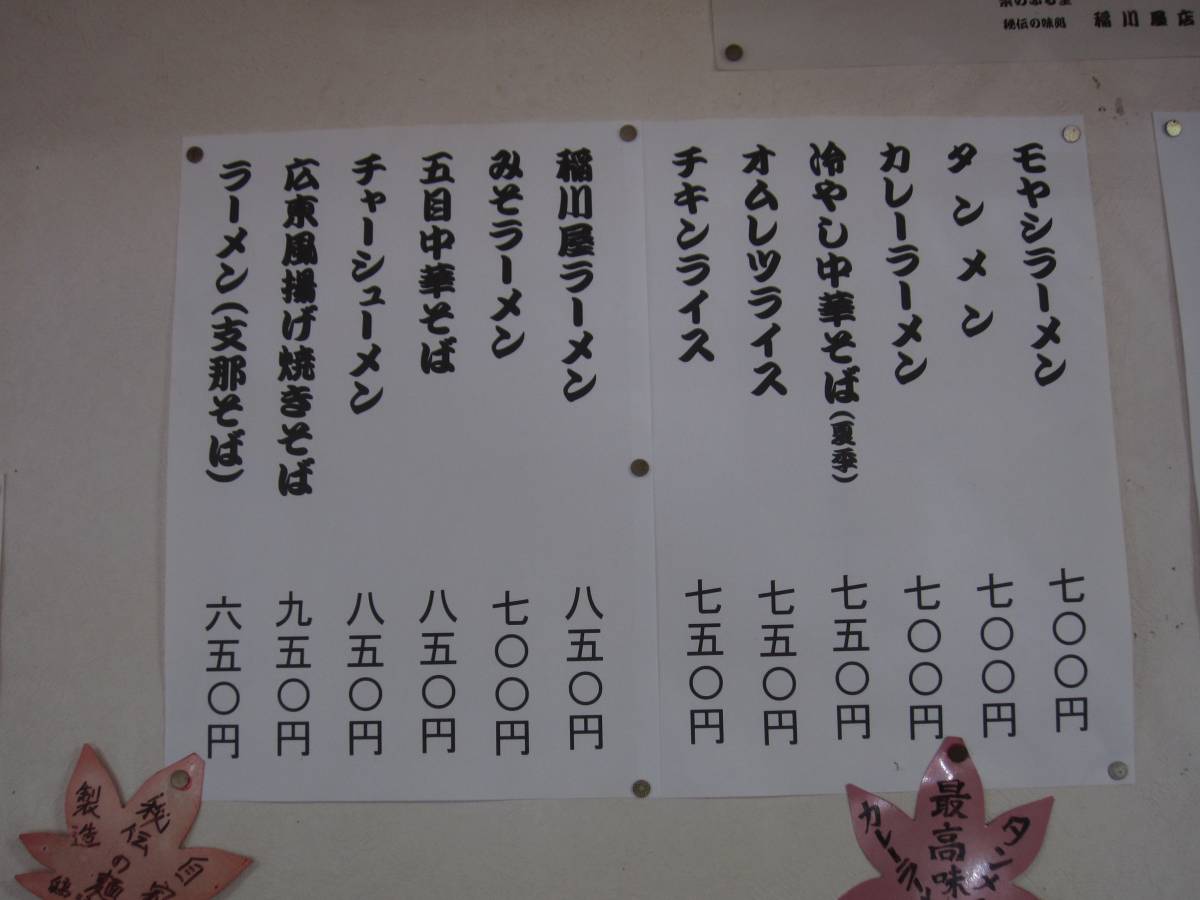 秘伝の味処 稲川屋店
モヤシラーメン 七〇〇円
タンメン 七〇〇円
カレーラーメン 七〇〇円
冷やし中華そば(夏季) 七五〇円
オムレツライス 七五〇円
チキンライス 七五〇円
稲川屋ラーメン 八五〇円
みそラーメン 七〇〇円
五目中華そば 八五〇円
チャーシューメン 八五〇円
広東風揚げ焼きそば 九五〇円
ラーメン(支那そば) 六五〇円
タンメ
最高味
カレーラ
秘伝の麺
製造